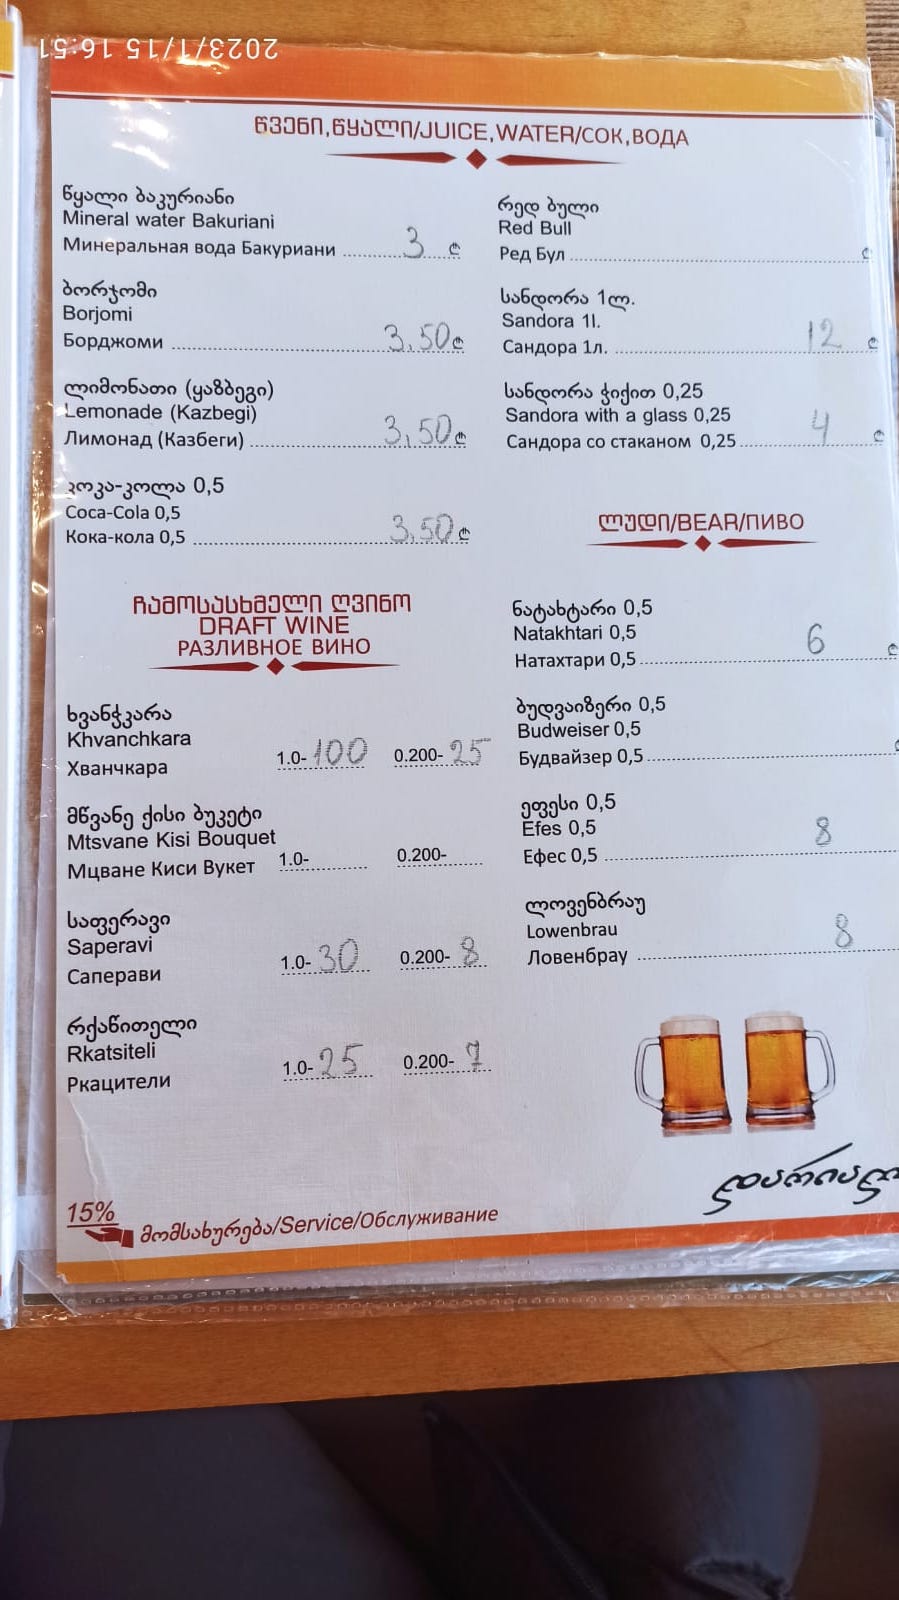 2023/1/15 16:51
წვენი,წყალი/JUICE,WATER/СОК,ВОДА
წყალი ბაკურიანი
Mineral water Bakuriani
Минеральная вода Бакуриани 3 ₾
ბორჯომი
Borjomi
Борджоми 3.50 ₾
ლიმონათი (ყაზბეგი)
Lemonade (Kazbegi)
Лимонад (Казбеги) 3,50 ₾
კოკა-კოლა 0,5
Coca-Cola 0,5
Кока-кола 0,5 3,50 ₾
რედ ბული
Red Bull
Ред Бул ₾
სანდორა 1ლ.
Sandora 1l.
Сандора 1л. 12 ₾
სანდორა ჭიქით 0,25
Sandora with a glass 0,25
Сандора со стаканом 0,25 4 ₾
ჩამოსასხმელი ღვინო
DRAFT WINE
РАЗЛИВНОЕ ВИНО
ხვანჭკარა
Khvanchkara
Хванчкара 1.0- 100 0.200- 25
მწვანე ქისი ბუკეტი
Mtsvane Kisi Bouquet
Мцване Киси Вукет 1.0- 0.200-
საფერავი
Saperavi
Саперави 1.0- 30 0.200- 8
რქაწითელი
Rkatsiteli
Ркацители 1.0- 25 0.200- 7
ლუდი/BEAR/ПИВО
ნატახტარი 0,5
Natakhtari 0,5
Натахтари 0,5 6 ₾
ბუდვაიზერი 0,5
Budweiser 0,5
Будвайзер 0,5 ₾
ეფესი 0,5
Efes 0,5
Ефес 0,5 8
ლოვენბრაუ
Lowenbrau
Ловенбрау 8
დარიალ
15%
მომსახურება/Service/Обслуживание